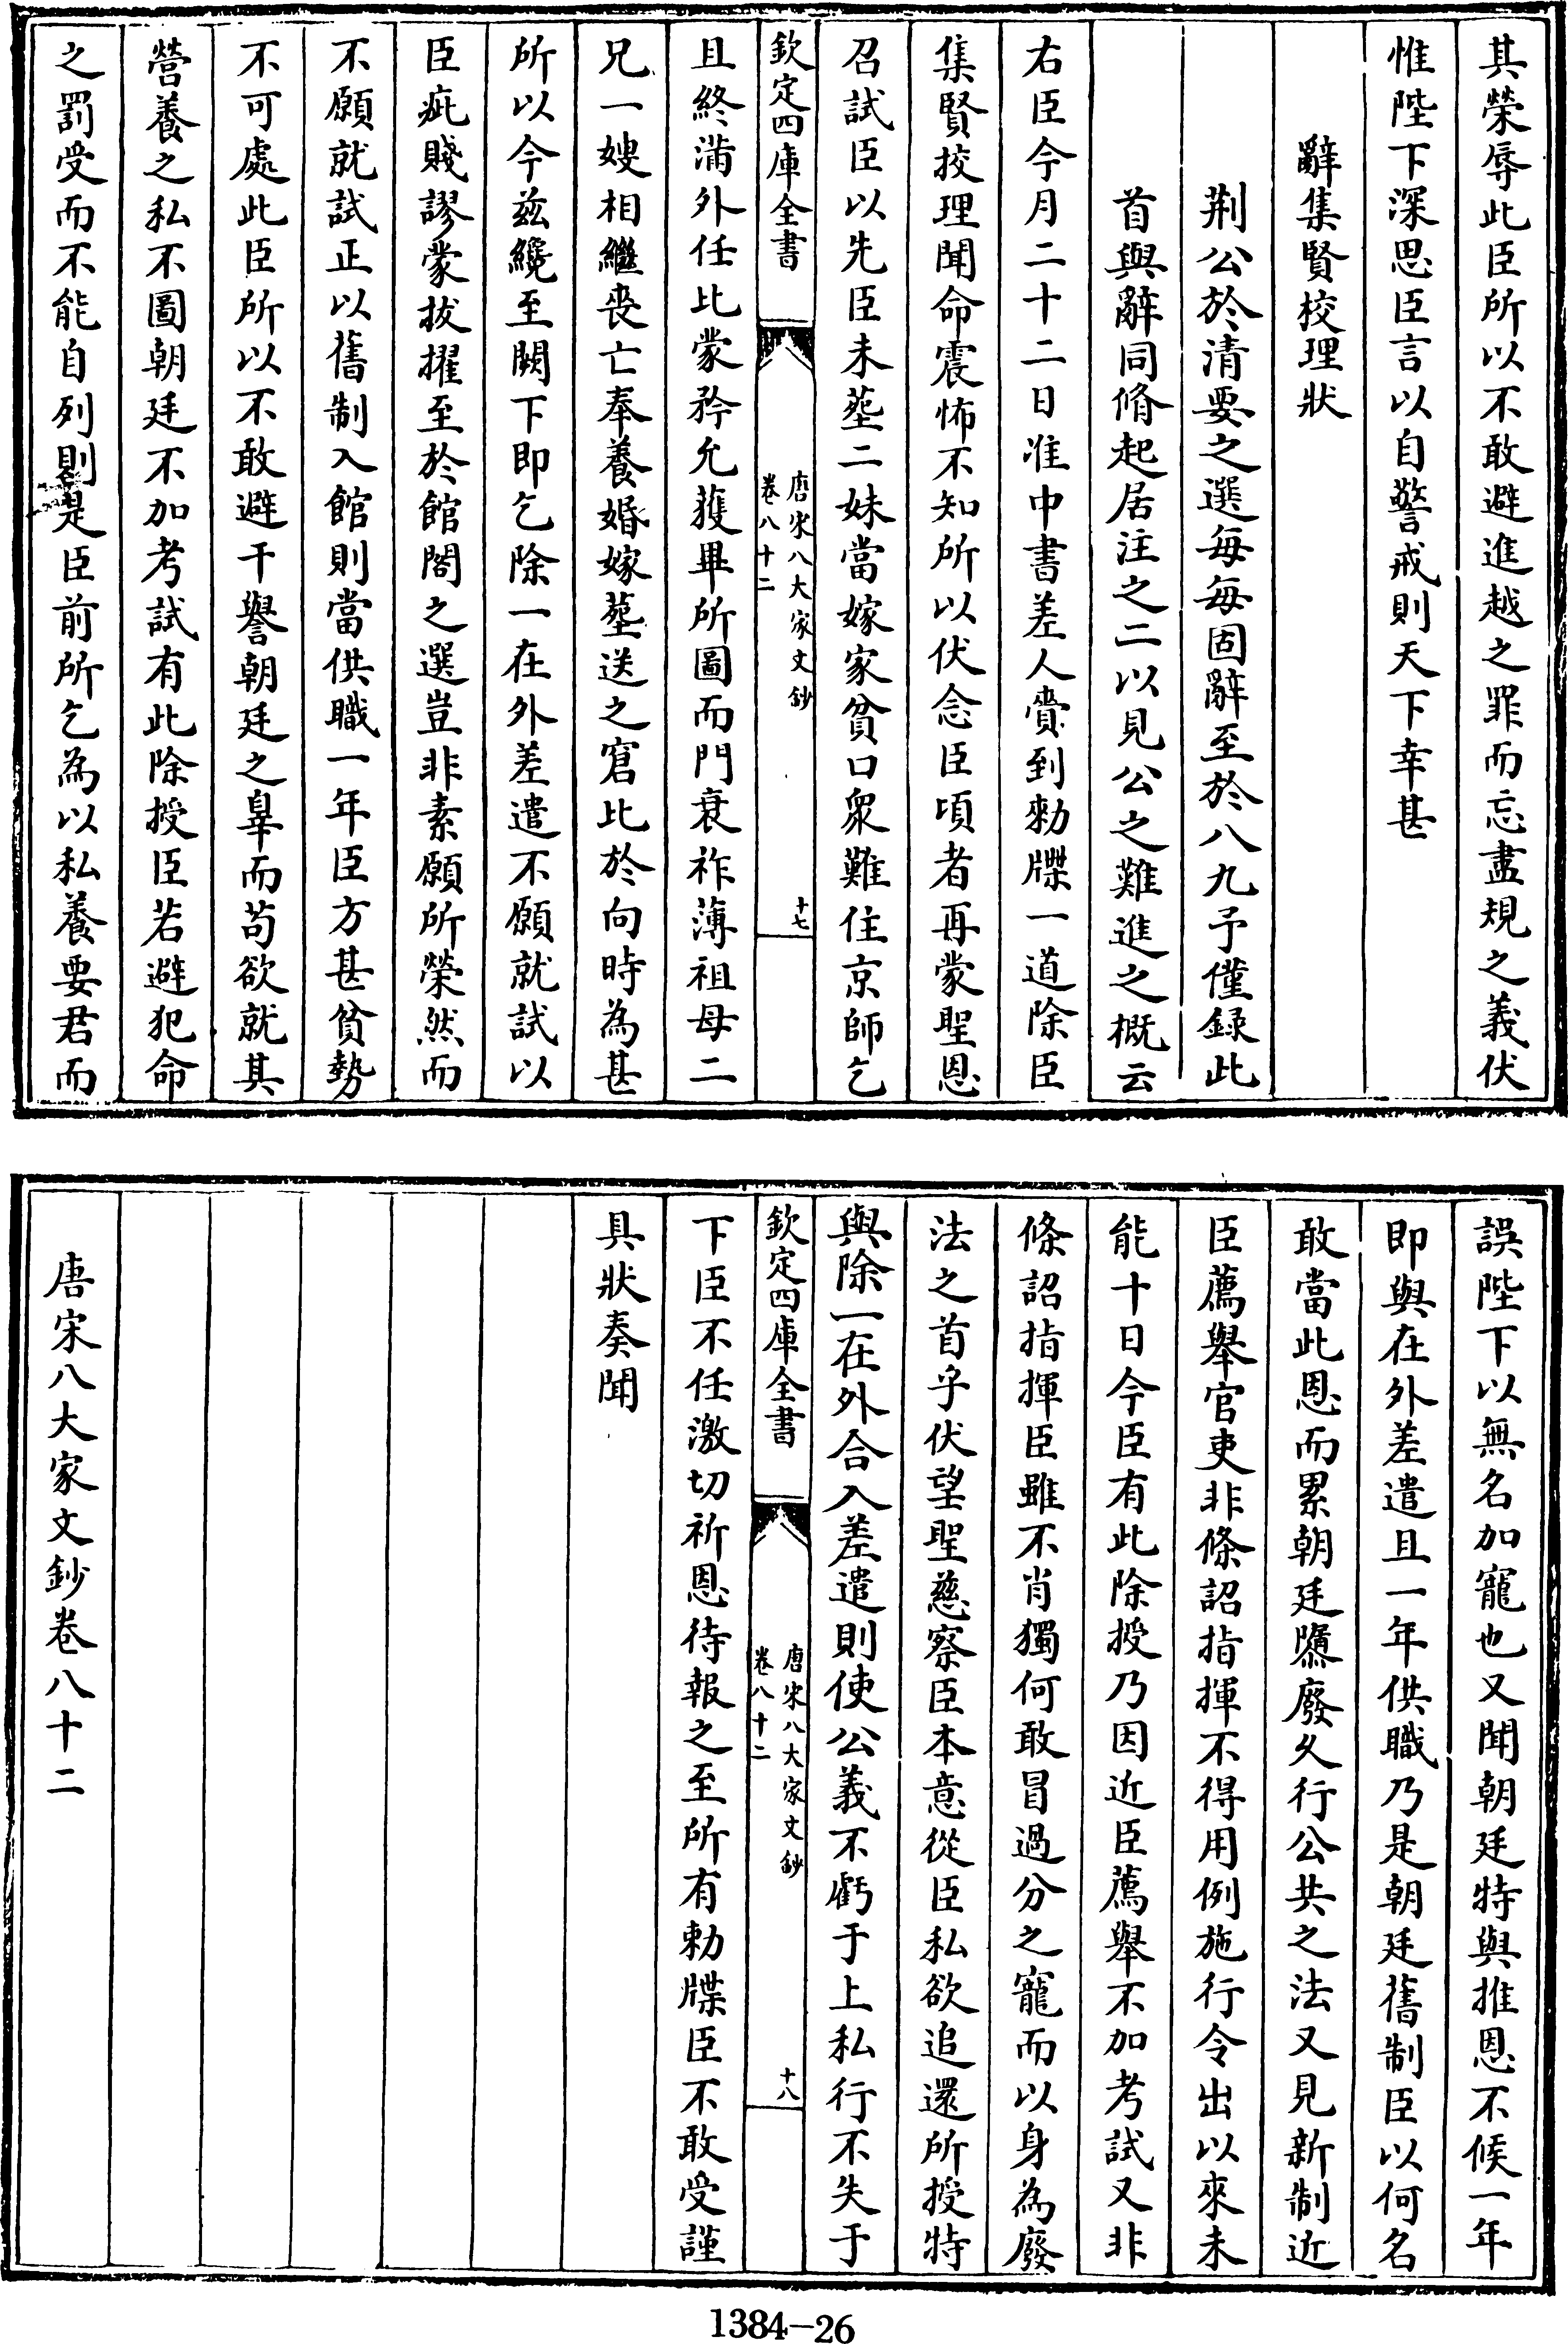 其榮辱此臣所以不敢避進越之罪而忘盡規之義伏
惟陛下深思臣言以自警戒則天下幸甚
辭集賢校理狀
荆公於清要之選每每固辭至於八九予僅録此
首與辭同脩起居注之二以見公之難進之概云
右臣今月二十二日准中書差人賫到勑牒一道除臣
集賢挍理聞命震怖不知所以伏念臣頃者再蒙聖恩
召試臣以先臣未塟二妹當嫁家貧口衆難住京師乞
欽定四庫全書
唐宋八大家文鈔
卷八十二
十七
且終滿外任比蒙矜允獲畢所圖而門衰祚薄祖母二
兄一嫂相繼喪亡奉養婚嫁塟送之窘比於向時為甚
所以今兹纔至闕下即乞除一在外差遣不願就試以
臣疵賤謬蒙拔擢至於館閣之選豈非素願所榮然而
不願就試正以舊制入館則當供職一年臣方甚貧勢
不可處此臣所以不敢避干譽朝廷之辠而苟欲就其
營養之私不圖朝廷不加考試有此除授臣若避犯命
之罰受而不能自列則是臣前所乞為以私養要君而
誤陛下以無名加寵也又聞朝廷特與推恩不候一年
即與在外差遣且一年供職乃是朝廷舊制臣以何名
敢當此恩而累朝廷隳廢久行公共之法又見新制近
臣薦舉官吏非條詔指揮不得用例施行令出以來未
能十日今臣有此除授乃因近臣薦舉不加考試又非
條詔指揮臣雖不肖獨何敢冒過分之寵而以身為廢
法之首乎伏望聖慈察臣本意從臣私欲追還所授特
與除一在外合入差遣則使公義不虧于上私行不失于
欽定四庫全書
唐宋八大家文鈔
卷八十二
十八
下臣不任激切祈恩待報之至所有勑牒臣不敢受謹
具狀奏聞
唐宋八大家文鈔卷八十二
1384-26